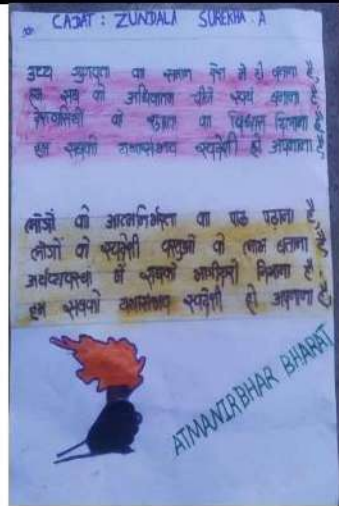 CADAT : ZUNDALA SUREKHA . A
उच्च गुणवत्ता का समान देश में ही बनाना है
हम सब को अधिकतम चीजें स्वयं बनाना है
देशवासियों को का विश्वास दिलाना है
हम सबको यथासंभव स्वदेशी ही अपनाना है
लोगों को आत्मनिर्भरता का पाठ पढ़ाना है
लोगों को स्वदेशी वस्तुओं के लाभ बताना है
अर्थव्यवस्था में सबको भागीदारी निभाना है
हम सबको यथासंभव स्वदेशी ही अपनाना है
ATMANIRBHAR BHARAT